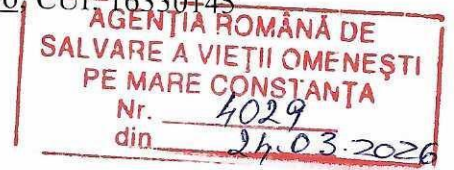 CUI: 16330145
AGENȚIA ROMÂNĂ DE
SALVARE A VIEȚII OMENEȘTI
PE MARE CONSTANȚA
Nr. 4029
din 24.03.2026